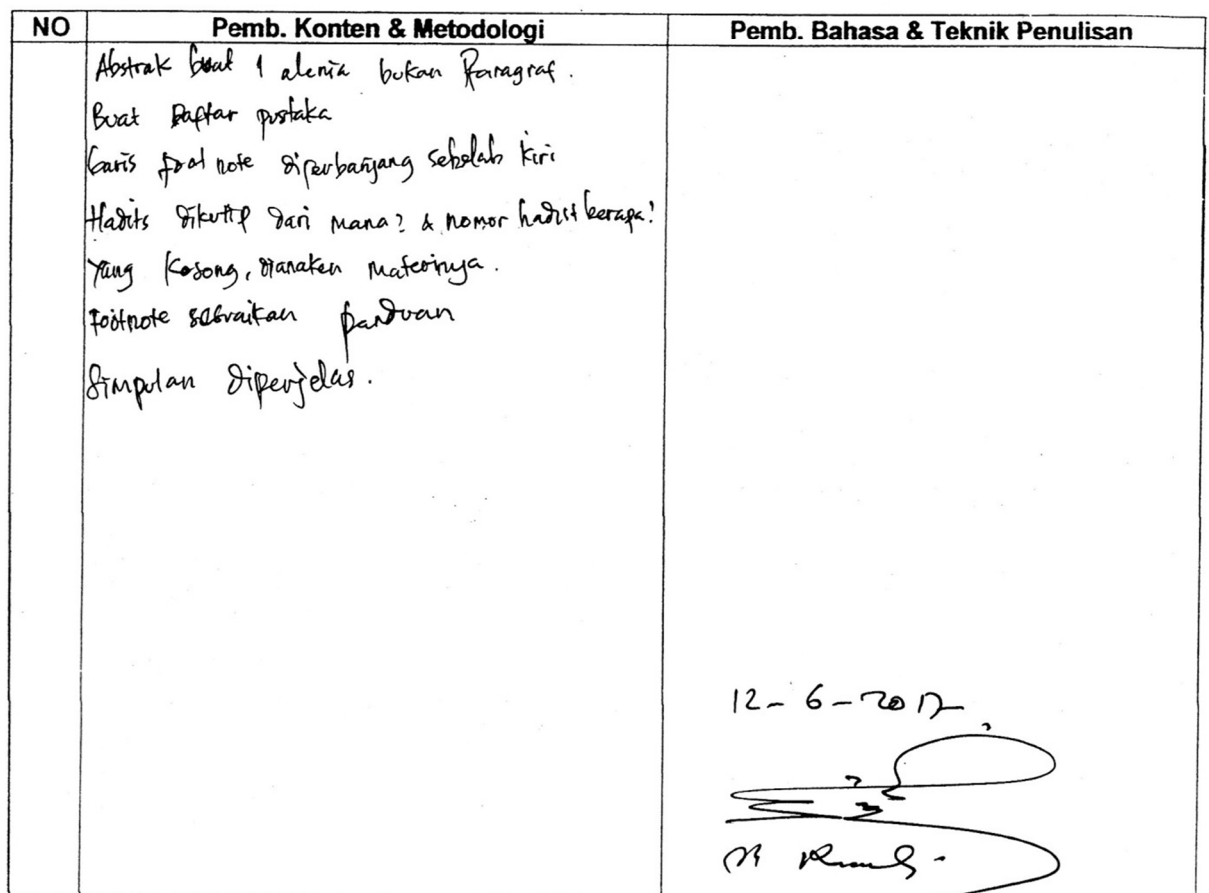 NO Pemb. Konten & Metodologi Pemb. Bahasa & Teknik Penulisan
Abstrak buat 1 alenia bukan Paragraf.
Buat Daftar pustaka
Garis foot note diperbanjang sebelah kiri
Hadits dikutip dari mana? & nomor hadist berapa?
Yang kosong, materinya.
Footnote sesuaikan panduan
Simpulan diperjelas.
12-6-2017